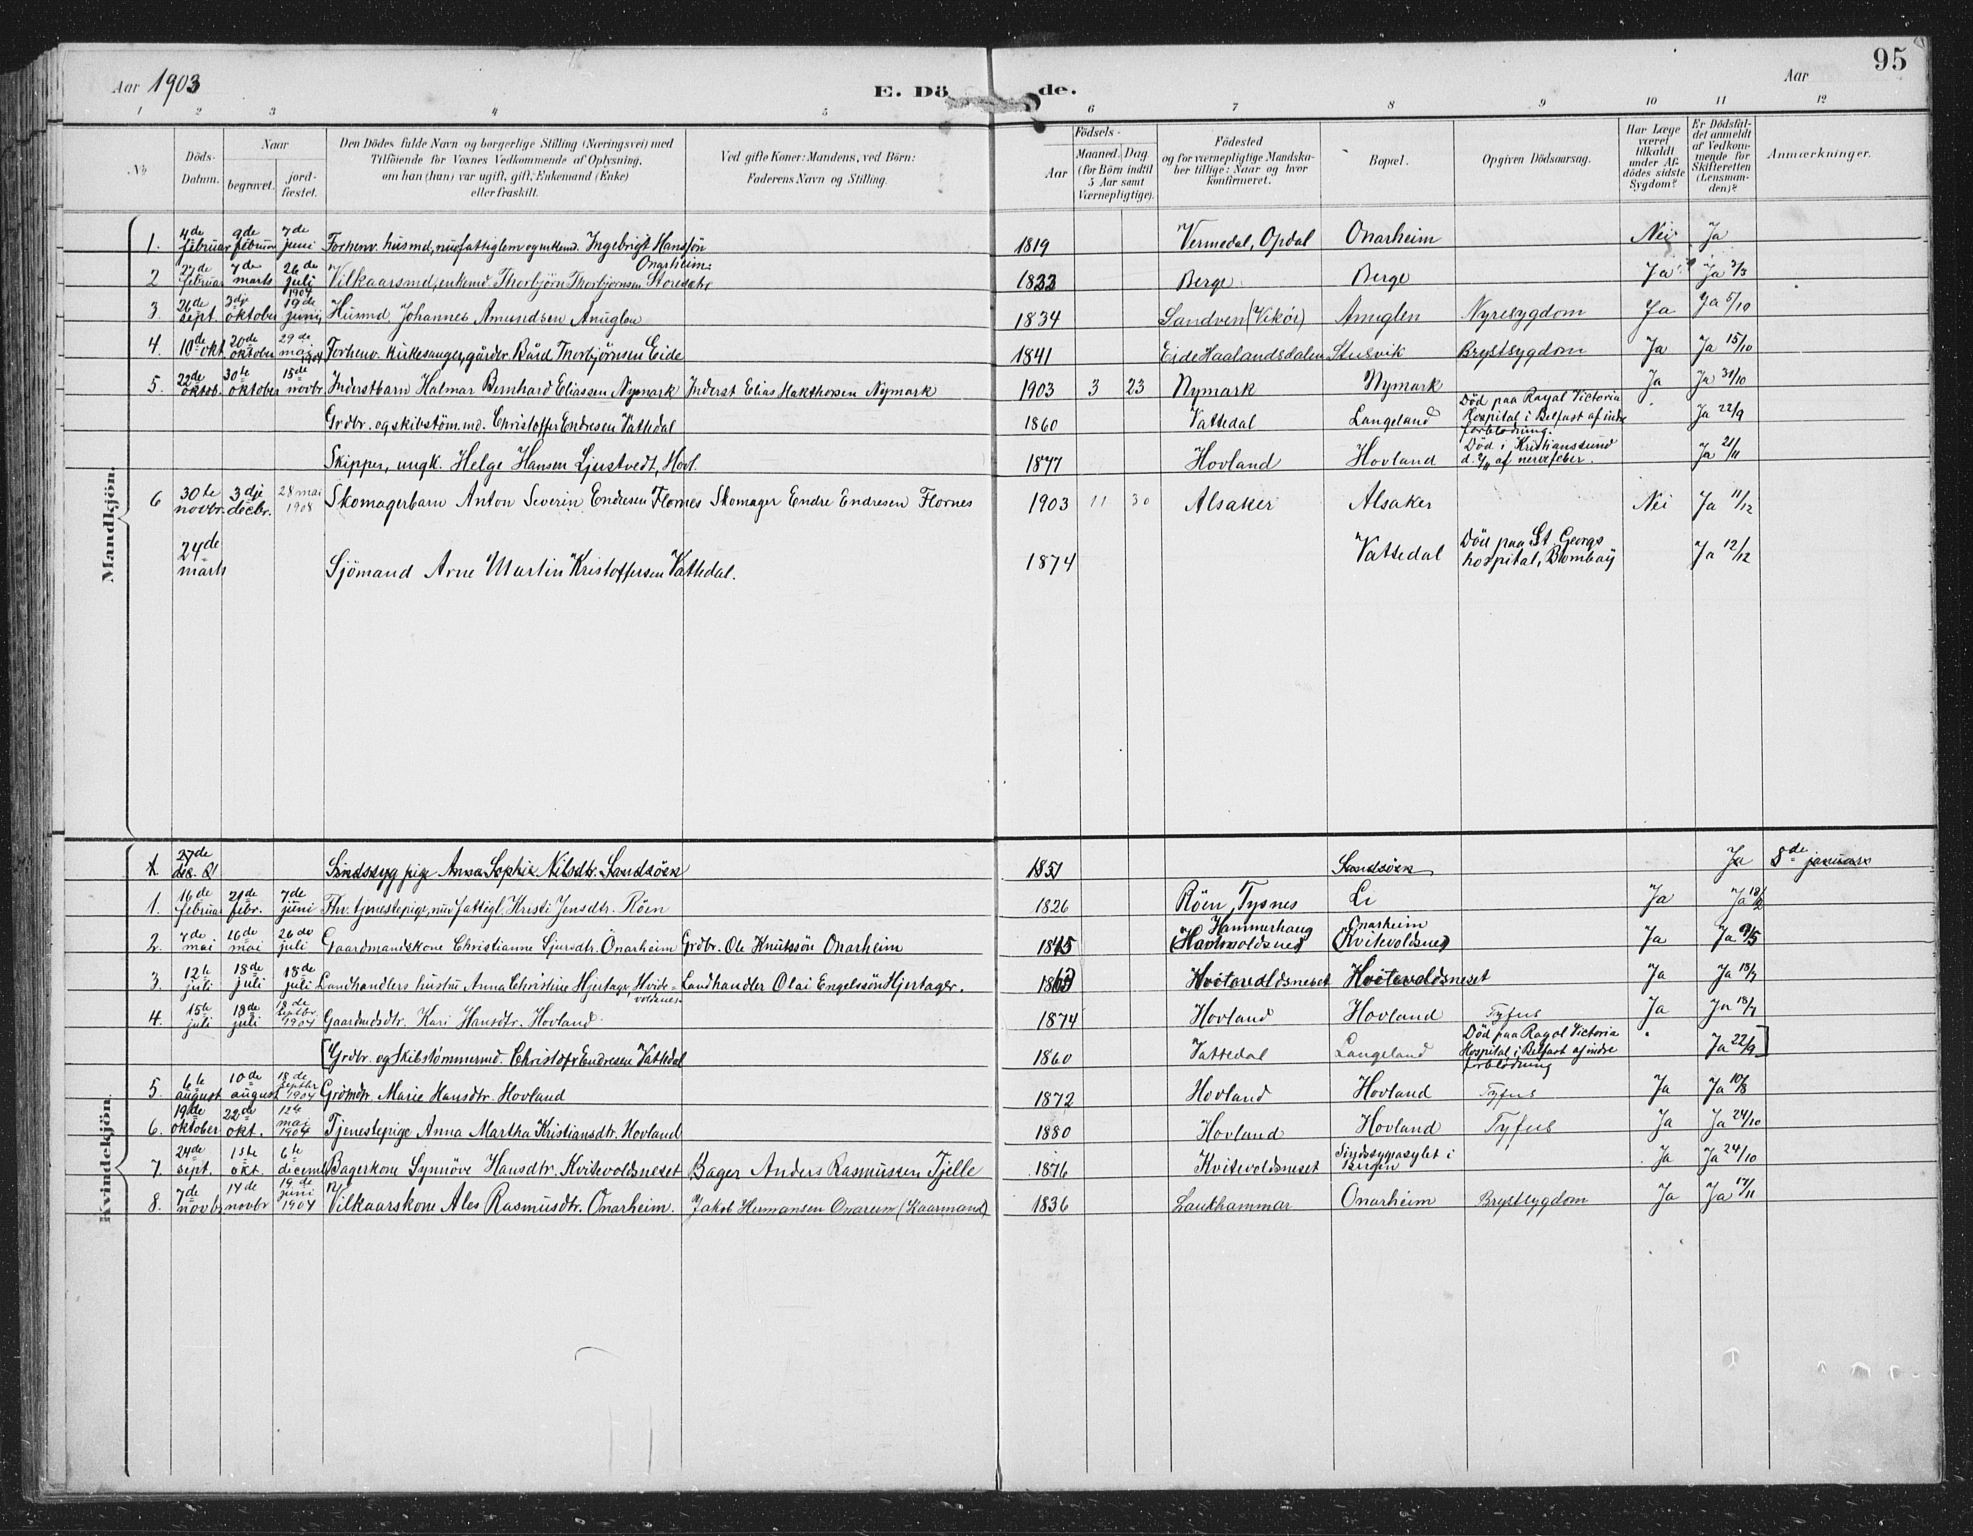 95
Aar 1903
E. Dö de.
Aar
1 2 3 4 5 6 7 8 9 10 11 12
No
Döds-Datum.
Naar
begravet.
jord-fæstet.
Den Dödes fulde Navn og borgerlige Stilling (Næringsvei) med
Tilföiende for Voxnes Vedkommende af Oplysning,
om han (hun) var ugift, gift, Enkemand (Enke)
eller fraskilt.
Ved gifte Koner: Mandens, ved Börn:
Faderens Navn og Stilling.
Födsels-
Aar
Maaned. Dag
(for Börn indtil
5 Aar samt
Værnepligtige).
Födested
og for værnepligtige Mandska-
ber tillige: Naar og hvor
konfirmeret.
Bopæl.
Opgiven Dödsaarsag.
Har Læge
været
tilkaldt
under Af-
dödes sidste
Sygdom?
Er Dödsfal-
det anmeldt
af Vedkom-
mende for
Skifteretten
(Lensman-
den)?
Anmærkninger.
Mandkjön.
1. 4de februar 9de februar 7de juni Forhenv. husmd, nu fattiglem og enkemd. Ingebrigt Hanssön Onarheim. 1819 Vermedal, Opdal Onarheim Nei Ja
2 27de februar 7de marts 26de juli Vilkaarsmd, enkemd Thorbjörn Thorbjörnsen 1822 Berge Berge Ja Ja 3/3
3. 26de sept. 3dje oktober 1904 19de juni Husmd. Johannes Amundsen Anuglen 1834 Sandven (Vikör) Anuglen Nyresygdom Ja Ja 5/10
4. 10de okt. 20de oktober 29de mai 1904 Forhenv. kirkesanger, gårdbr. Bård Thorbjörnsen Eide 1841 Eide Haalandsdalen Stusvik Brystsygdom Ja Ja 15/10
5. 22de oktob. 30te oktober 15de novbr Inderstbarn Halmar Bernhard Eliassen Nymark Inderst Elias Nymark 1903 3 23 Nymark Nymark Ja Ja 31/10
Grdbr. og skibstöm.md. Christoffer Endresen Vattedal 1860 Vattedal Langeland Död paa Royal Victoria Hospital i Belfast af indre forblödning. Ja 22/9
Skipper, ungk. Helge Hansen Ljustvedt, Hovl. 1877 Hovland Hovland Död i Kristianssund d. af nervefeber. Ja 21/11
6 30te novbr. 3dje decbr. 28 mai 1908 Skomagerbarn Anton Severin Endresen Flornes Skomager Endre Endresen Flornes 1903 11 30 Alsaker Alsaker Nei Ja 11/12
24de marts Sjömand Arne Martin Kristoffersen Vattedal. 1874 Vattedal Död paa St Georgs hospital, Bombay Ja 12/12
Kvindekjön.
27de Sindssyg pige Anna Sophie Nilsdtr. Sandsöen 1851 Sandsöen Ja 8de januar
1. 16de februar 21de febr. 7de juni Fhv. tjenestepige, nu fattigl. Kristi Jensdtr. Röen 1826 Röen, Tysnes Li Ja Ja 18/2
2. 7de mai 16de mai 26de juli Gaardmandskone Christianne Sjursdtr. Onarheim Grdbr. Ole Knutssön Onarheim 1845 Hammerhaug Onarheim (Kvitevoldsnes) Ja Ja 9/5
3. 12te juli 18de juli 18de juli Landhandlers hustru Anna Christine Hjertager, Hvidevoldsnes Landhandler Olai Engelssön Hjertager. Hvitevoldsneset Hvitevoldsneset Ja Ja 18/7
4. 15de juli 18de juli 18de septbr. 1904 Gaardmdsdtr. Kari Hansdtr. Hovland 1874 Hovland Hovland Tyfus Ja Ja 18/7
[Grdbr. og Skibstömmermd. Christofr Endresen Vattedal 1860 Vattedal Langeland Död paa Royal Victoria Hospital, i Belfast af indre forblödning Ja 22/9]
5. 6te august 10de august 18de septbr 1904 Grdmdtr. Marie Hansdtr. Hovland 1872 Hovland Hovland Tyfus Ja Ja 10/8
6. 19de oktober 22de okt. 12te mai 1904 Tjenestepige Anna Martha Kristiansdtr. Hovland 1880 Hovland Hovland Tyfus Ja Ja 24/10
7. 24de sept. 1ste okt. 6te decemb Bagerkone Synnöve Hansdtr. Kvitevoldsneset Bager Anders Rasmussen Tjelle 1876 Kvitevoldsneset Sindssygeasylet i Bergen Ja Ja 24/10
8. 7de novb. 14de novbr 19de juni 1904 Vilkaarskone Ales Rasmusdtr. Onarheim. Jakob Hermansen Onareim (Kaarmand) 1836 Laukhammar Onarheim Brystsygdom Ja Ja 17/11